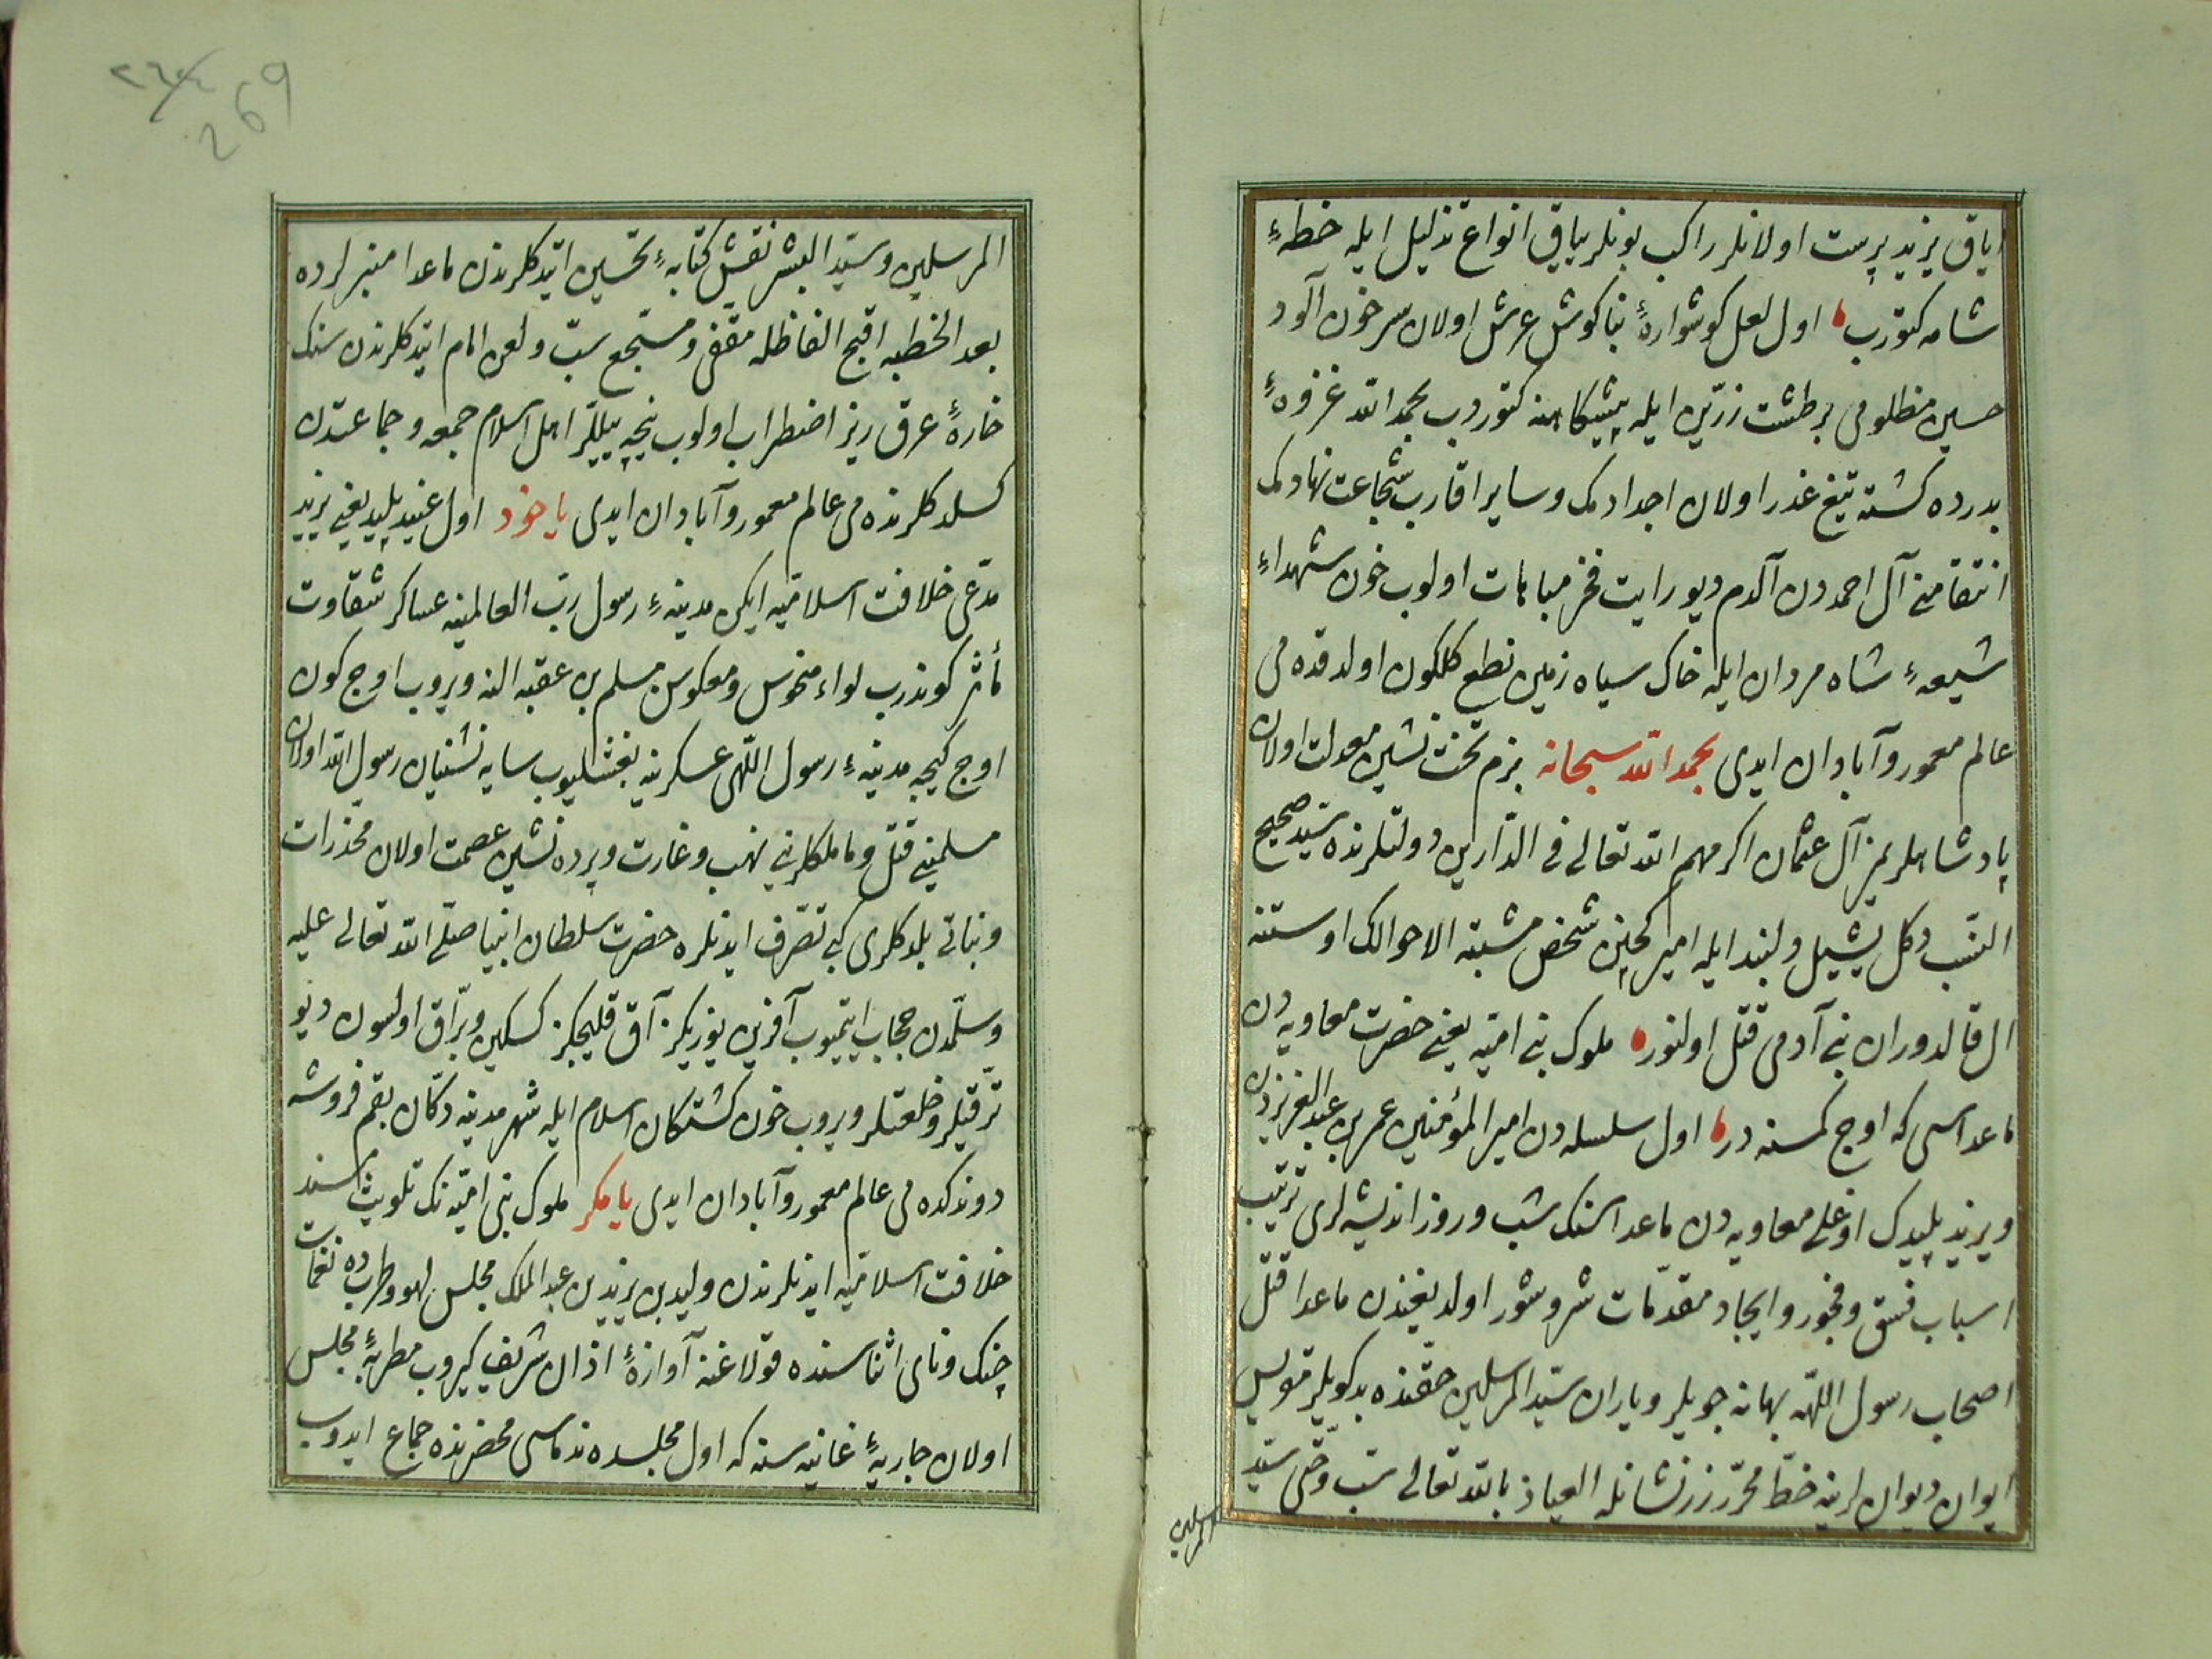 ایاق یزید پرست اولانلر راکب بونلر یباق انواع تذلیل ایله خطهٔ
شامه کتورب اول لعل کوشوارهٔ بناکوش عرش اولان سر خون آلود
حسین مظلومی بر طشت زرّین ایله پیشکاهنه کتوردوب بحمد الله غزوهٔ
بدرده کشته تیغ غدر اولان اجدادمک و سایر اقارب شجاعت نهادمک
انتقامنی آل احمددن آلدم دیو رایت فخر مباهات اولوب خون شهداءِ
شیعهٔ شاه مردان ایله خاک سیاه زمین نطع کلکون اولدقده می
عالم معمور و آبادان ایدی بحمد الله سبحانه بزم تخت نشین معدلت اولان
پادشاهلریمز آل عثمان اکرمهم الله تعالی فی الدّارین دولتلرنده سیّد صحیح
النسب دکل یشیل دلبند ایله امیر کچنن شخص مشتبه الاحوالک اوستنه
ال قالدوران بنی آدمی قتل اولنور ملوک بنی امیّه یعنی حضرت معاویه دن
ماعداسی که اوج کمسنه در اول سلسله دن امیر المؤمنین عمر بن عبد العزیزدن
و یزید پلیدک اوغلی معاویه دن ماعداسنک شب و روز اندیشه لری ترتیب
اسباب فسق و فجور و ایجاد مقدّمات شر و شور اولدیغندن ماعدا قتل
اصحاب رسول اللّهه بهانه جویلر و یاران سیّد المرسلین حقنده بدکویلر قویس
ایوان دیوانلرینه خطّ محرّر زرنشانله العیاذ بالله تعالی سبّ وصّی سیّد
المرسلین
269
المرسلین و سیّد البشر نقش کتابهٔ تحسین اتیدکلرندن ماعدا منبرلرده
بعد الخطبه اقبح الفاظله مقفی و مسجّع سبّ و لعن امام اتیدکلرندن سنک
خارهٔ عرق ریز اضطراب اولوب نیجه ییللر اهل اسلام جمعه و جماعتدن
کسلدکلرنده می عالم معمور و آبادان ایدی یا خود اول عنید پلید یعنی یزید
مدّعی خلافت اسلامیّه ایکن مدینهٔ رسول ربّ العالمینه عساکر شقاوت
مأثر کوندرب لواء منحوس و معکوس مسلم بن عقبه النه ویروب اوج کون
اوج کیجه مدینهٔ رسول اللّهی عسکرینه بغشلیوب سایه نشینان رسول الله اولان
مسلمینی قتل و ماملکلرینی نهب و غارت و پرده نشین عصمت اولان مخذرات
و بناتی بلدکلری کبی تصرّف ایدنلره حضرت سلطان انبیا صلّی الله تعالی علیه
و سلّمدن حجاب ایتمیوب آفرین یوزیکز آق قلیجکز کسکین و برّاق اولسون دیو
ترقّیلر و خلعتلر ویروب خون کشتکان اسلام ایله شهر مدینه دکّان بقم فروشه
دوندکده می عالم معمور و آبادان ایدی یا مکر ملوک بنی امیّه نک تلویث مسند
خلافت اسلامیّه ایدنلرندن ولید بن یزید بن عبد الملک مجلس لهو و طربده نغمات
چنک و نای اثناسنده قولاغنه آوازهٔ اذان شریف کیروب مطربهٔ مجلس
اولان جاریهٔ غانیه سنه که اول مجلسده ندماسی محضرنده جماع ایدوب